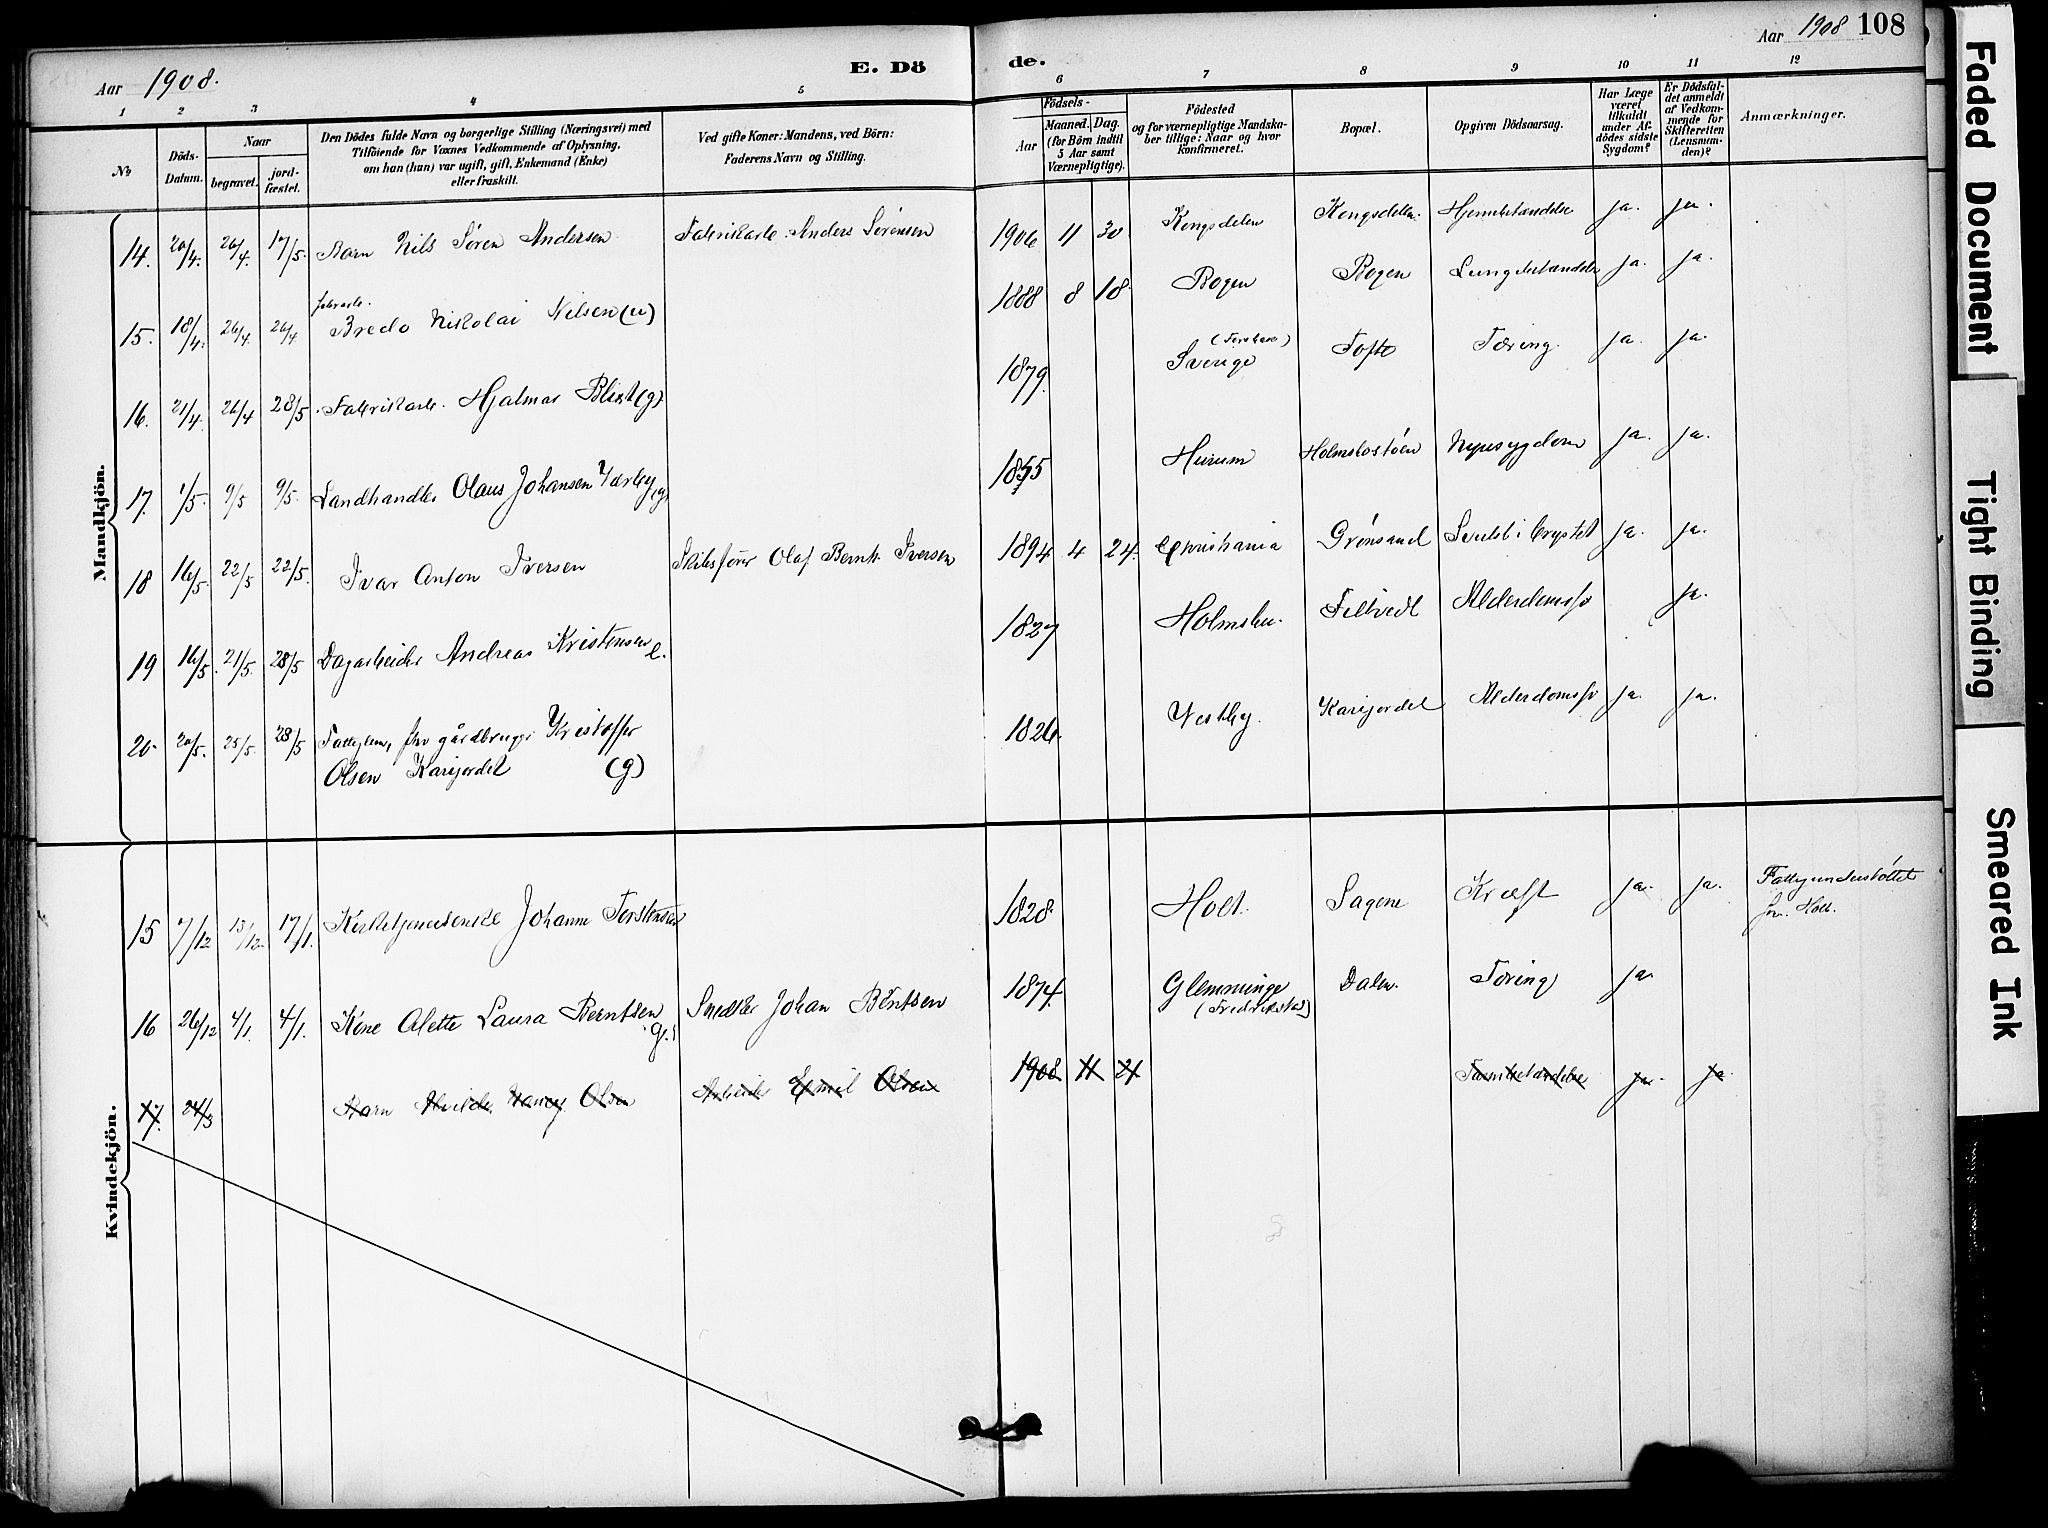 Aar 1908. E. Dö
de. Aar 1908 108
1 2 3 4 5 6 7 8 9 10 11 12
No
Döds-Datum.
Naar
begravet.
jord-fæstet.
Den Dödes fulde Navn og borgerlige Stilling (Næringsvei) med
Tilföiende for Voxnes Vedkommende af Oplysning,
om han (hun) var ugift, gift, Enkemand (Enke)
eller fraskilt.
Ved gifte Koner: Mandens, ved Börn:
Faderens Navn og Stilling.
Födsels-
Aar
Maaned. Dag.
(for Börn indtil
5 Aar samt
Værnepligtige).
Födested
og for værnepligtige Mandska-
ber tillige: Naar og hvor
konfirmeret.
Bopæl.
Opgiven Dödsaarsag.
Har Læge
været
tilkaldt
under Af-
dödes sidste
Sygdom?
Er Dödsfal-
det anmeldt
af Vedkom-
mende for
Skifteretten
(Lensman-
den)?
Anmærkninger.
Mandkjön.
14. 20/4. 26/4. 17/5. Barn Nils Søren Andersen Fabrikarb. Anders Sørensen 1906 11 30 Kongsdelen Kongsdelen Hjernebetændelse ja. ja.
fabrarb.
15. 18/4. 26/4. 26/4 Bredo Nikolai Nilsen (u) 1888 8 18 Bogen Bogen Lungebetændelse ja. ja.
16. 21/4. 26/4 28/5 Fabrikarb. Hjalmar Blixt (g) 1879. Sverige Tofte Tæring. ja. ja.
17. 1/5. 9/5 9/5. Landhandler Olaus Johansen Værby (g) 1855 Hurum Holmsbostøen Nyresygdom ja. ja.
18 16/5. 22/5 22/5. Ivar Anton Iversen Skibsfører Olaf Bernh. Iversen 1894 4 24. Christiania Grønsand Svulst i brystet ja. ja.
19 16/5. 21/5. 28/5 Dagarbeider Andreas Kristensen e. 1827 Holmsbu. Filtvedt Alderdomssv ja.
20 20/5. 25/5. 28/5 Fattiglem, før gårdbruger Kristoffer
Olsen Karijordet (g) 1826. Vestby. Karijordet Alderdomssv ja. ja.
Kvindekjön.
15 7/12 13/12. 17/1. Kirketjenerenke Johanne Torstensen 1828. Holt. Sagene Kræft ja. ja. Fattigunderstøttet
fra Holt.
16 26/12 4/1. 4/1. Kone Alette Laura Berntsen (g.) Snedker Johan Berntsen 1874. Glemminge
(Fredrikstad) Dalen. Tæring ja.
17. 24/3 Barn Hvilde Nancy Olsen Arbeider Emil Olsen 1908 11 24 Tarmbetændelse ja. ja.
Faded Document
Tight Binding
Smeared Ink